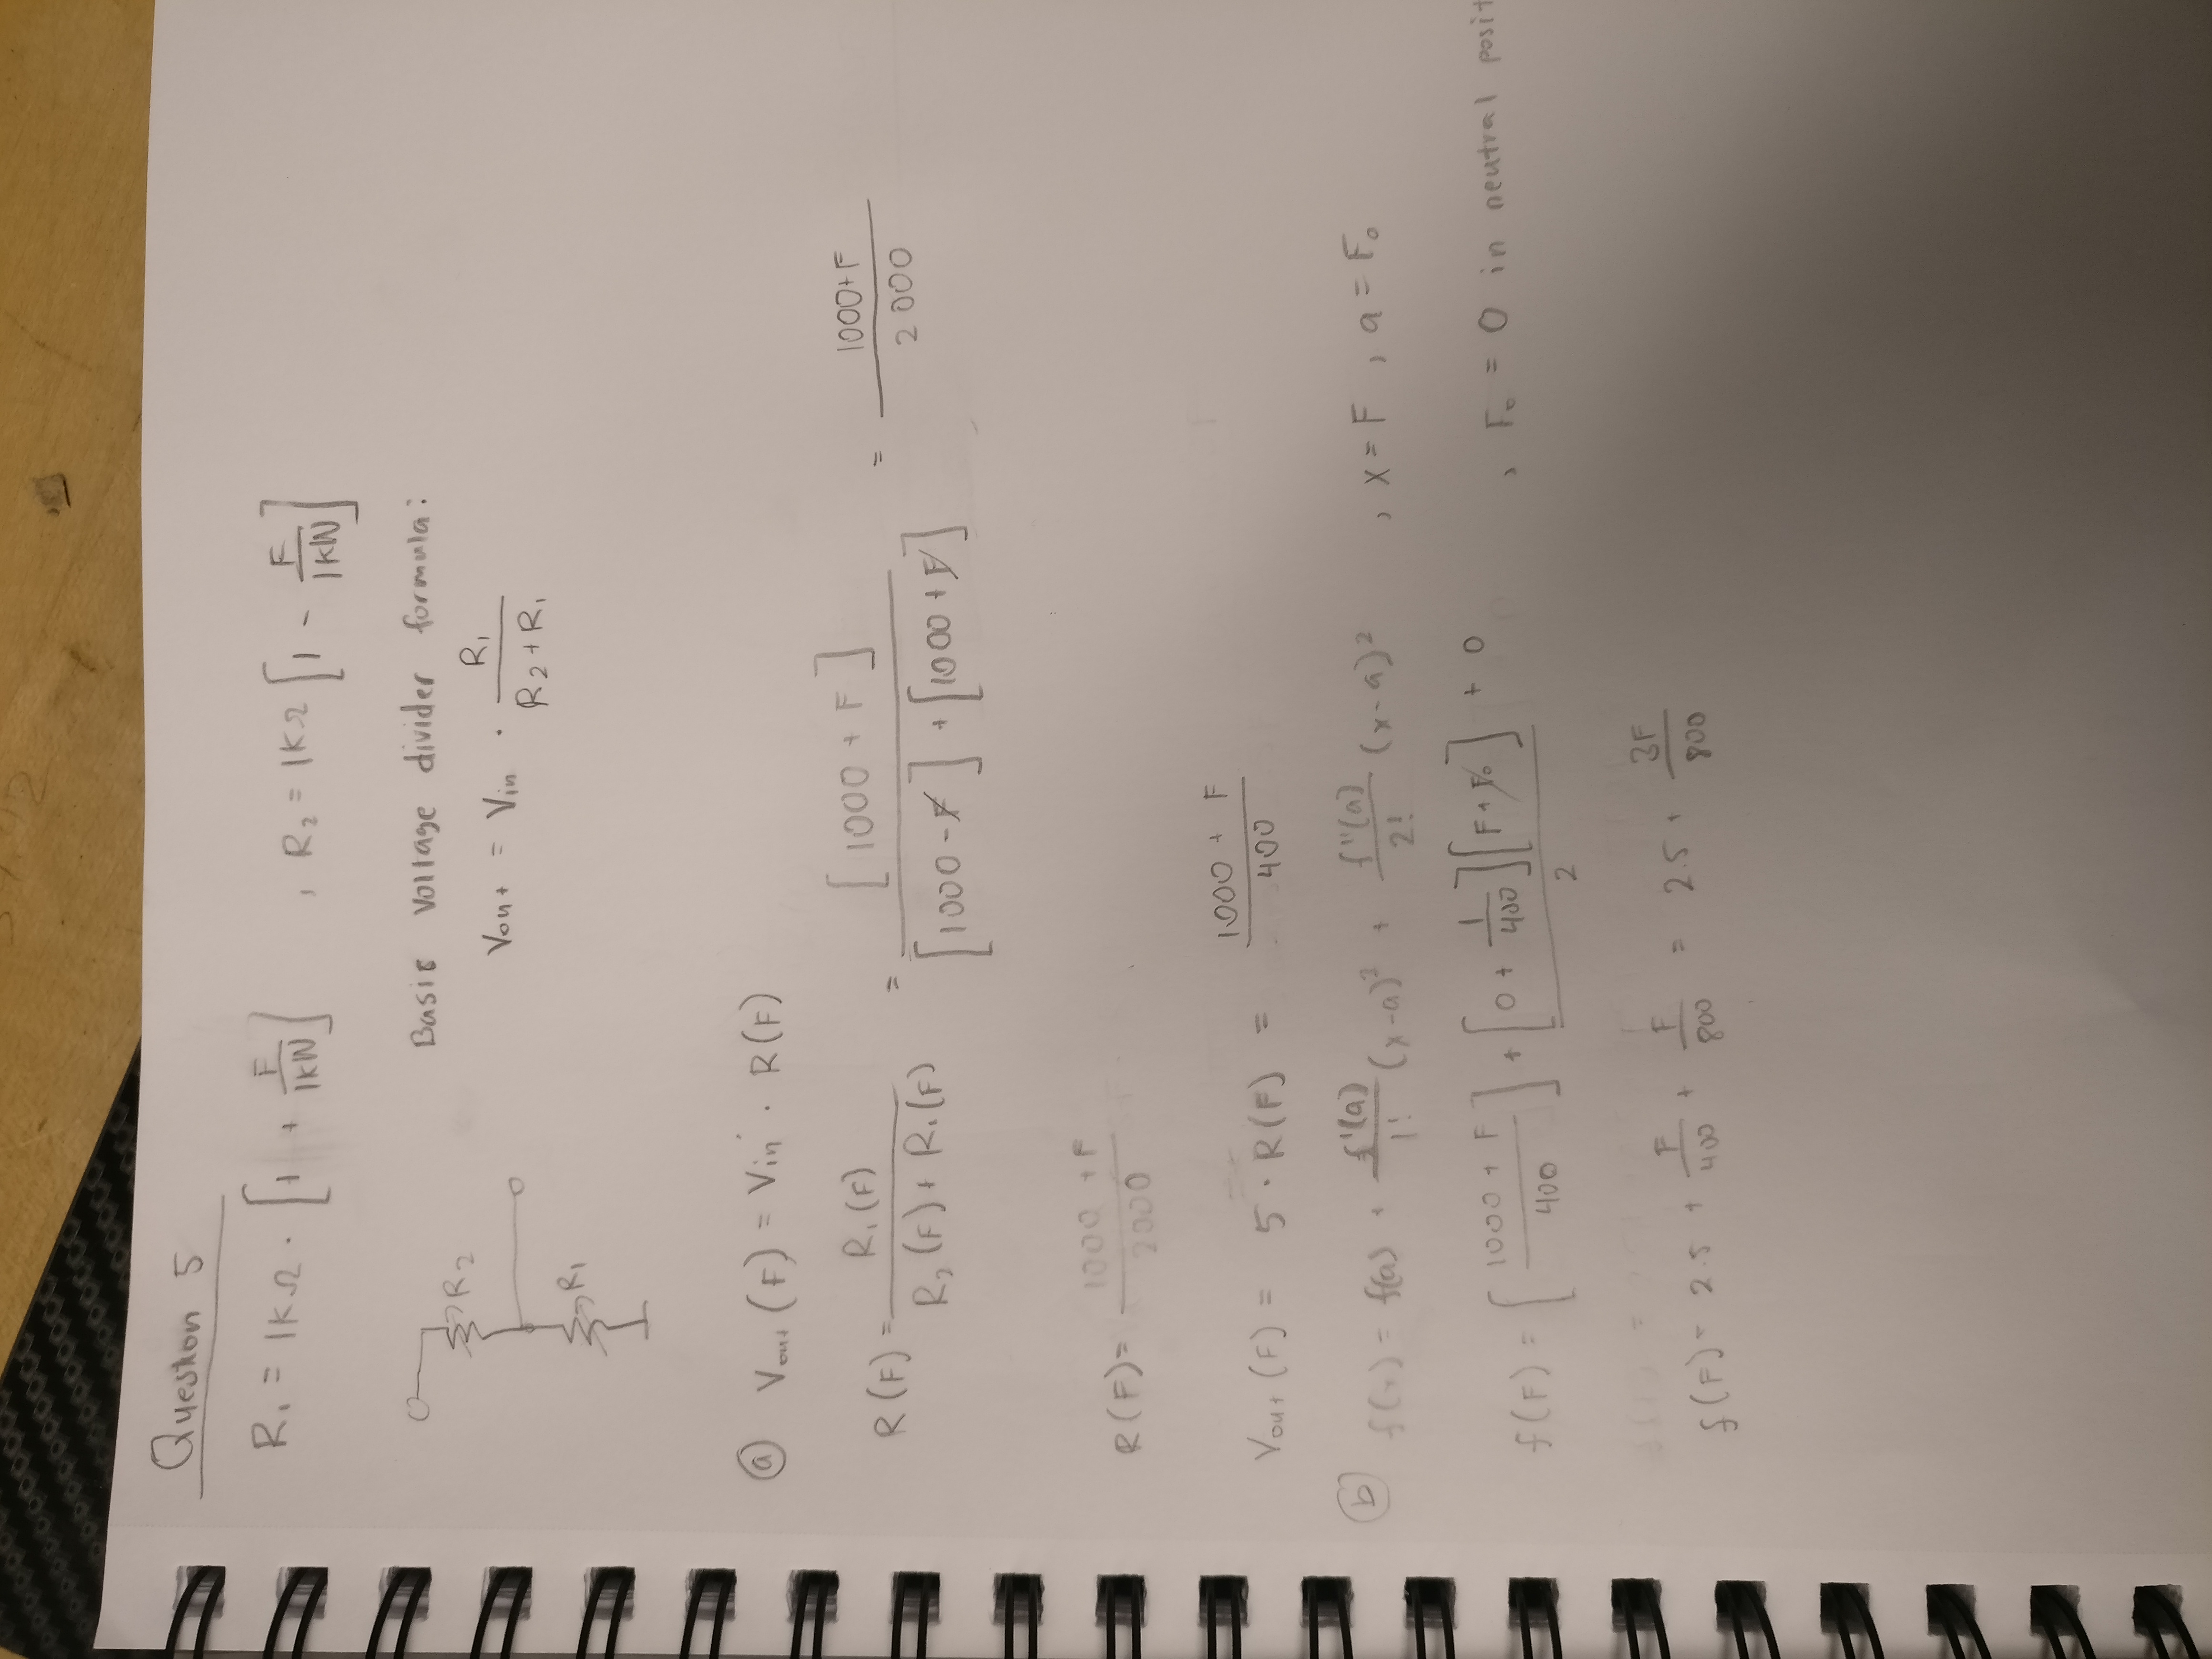 Question 5
R₁ = 1KΩ · [1 + F/1KN] , R₂ = 1KΩ [1 - F/1KN]
R₂
R₁
Basic voltage divider formula:
Vout = Vin · R₁/(R₂+R₁)
ⓐ Vout (F) = Vin · R(F)
R(F) = R₁(F)/(R₂(F) + R₁(F)) = [1000 + F]/([1000 - F] + [1000 + F]) = (1000+F)/2000
R(F) = (1000 + F)/2000
Vout (F) = 5 · R(F) = (1000 + F)/400
ⓑ f(x) = f(a) + f'(a)/1! (x-a)¹ + f''(a)/2! (x-a)² , x = F , a = F₀
f(F) = [(1000 + F)/400] + [0 + 1/400][F + F₀]/2 + 0 , F₀ = 0 in neutral posit
f(F) = 2.5 + F/400 + F/800 = 2.5 + 3F/800